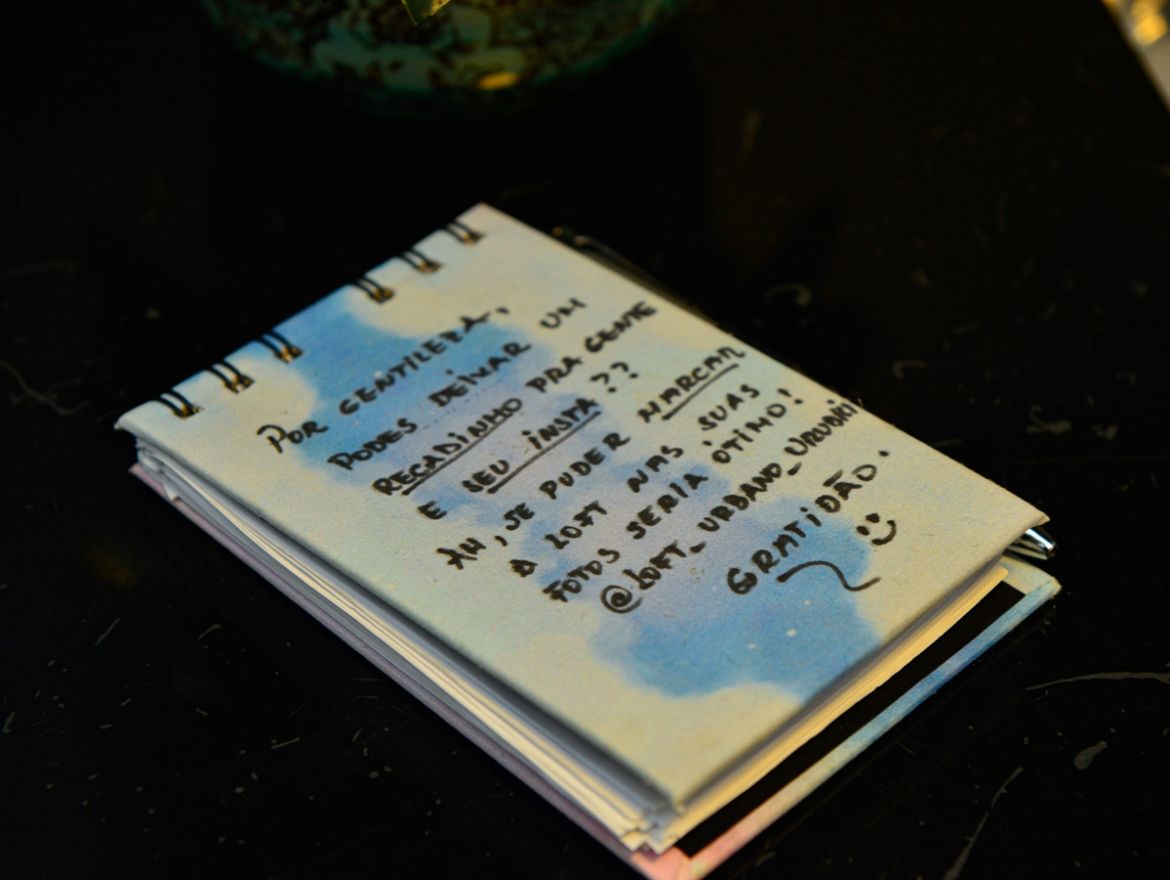 POR GENTILEZA,
PODES DEIXAR UM
RECADINHO PRA GENTE
E SEU INSTA??
AH, SE PUDER MARCAR
O LOFT NAS SUAS
FOTOS SERIA ÓTIMO!
@LOFT_URBANO_URUBICI
GRATIDÃO.